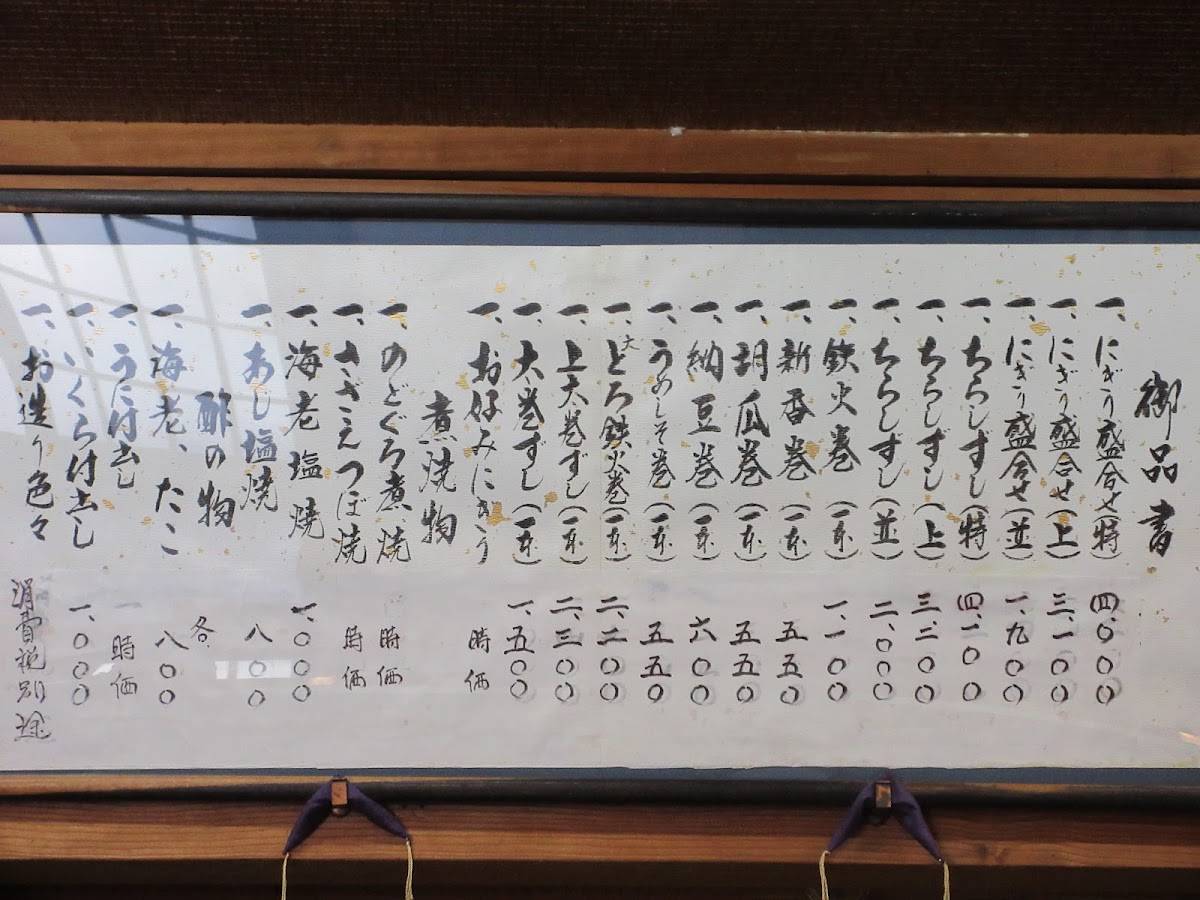 御品書
一、にぎり盛合せ(特) 四、〇〇〇
一、にぎり盛合せ(上) 三、一〇〇
一、にぎり盛合せ(並) 一、九〇〇
一、ちらしずし(特) 四、一〇〇
一、ちらしずし(上) 三、二〇〇
一、ちらしずし(並) 二、〇〇〇
一、鉄火巻(一本) 一、一〇〇
一、新香巻(一本) 五五〇
一、胡瓜巻(一本) 五五〇
一、納豆巻(一本) 六〇〇
一、うめしそ巻(一本) 五五〇
一、大とろ鉄火巻(一本) 二、二〇〇
一、上大巻ずし(一本) 二、三〇〇
一、大巻ずし(一本) 一、五〇〇
一、お好みにぎり 時価
煮焼物
一、のどぐろ煮焼 時価
一、さざえつぼ焼 時価
一、海老塩焼 一、〇〇〇
一、あじ塩焼 八〇〇
酢の物 各
一、海老、たこ 八〇〇
一、うに付出し 時価
一、いくら付出し 一、〇〇〇
一、お造り色々
消費税別途